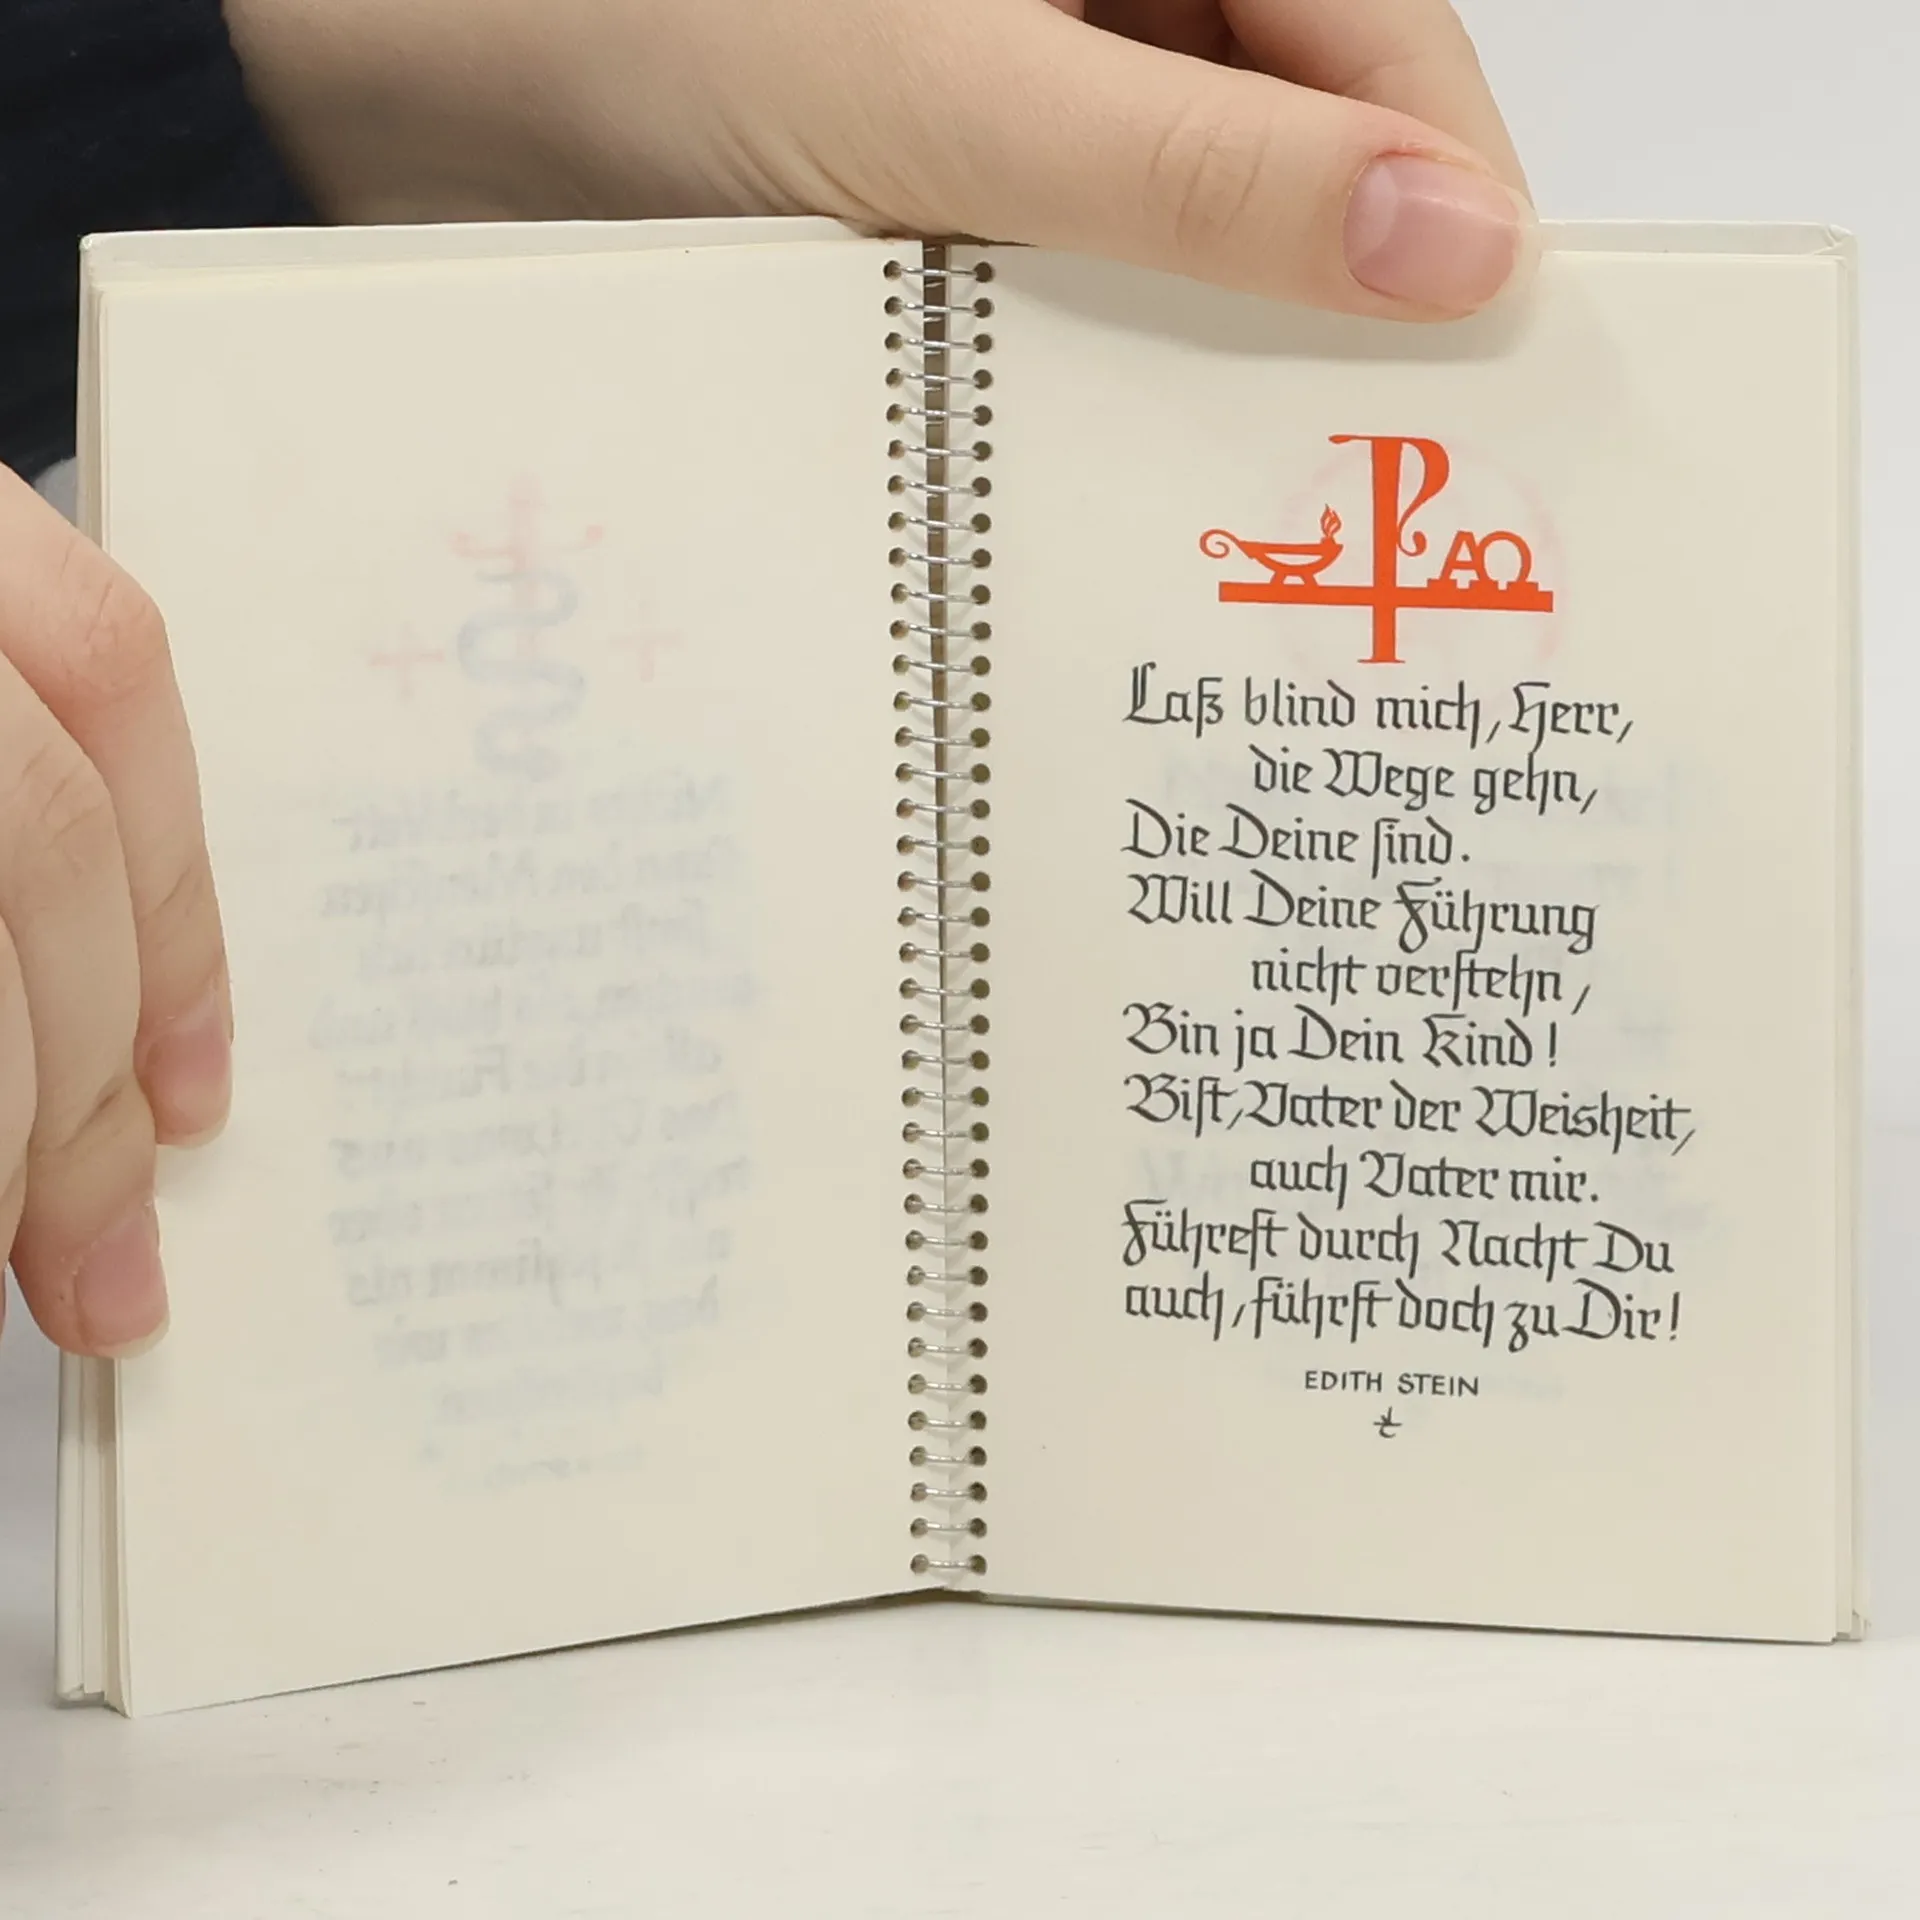 ΑΩ
Laß blind mich, Herr,
die Wege gehn,
Die Deine sind.
Will Deine Führung
nicht verstehn,
Bin ja Dein Kind!
Bist, Vater der Weisheit,
auch Vater mir.
Führest durch Nacht Du
auch, führst doch zu Dir!
EDITH STEIN